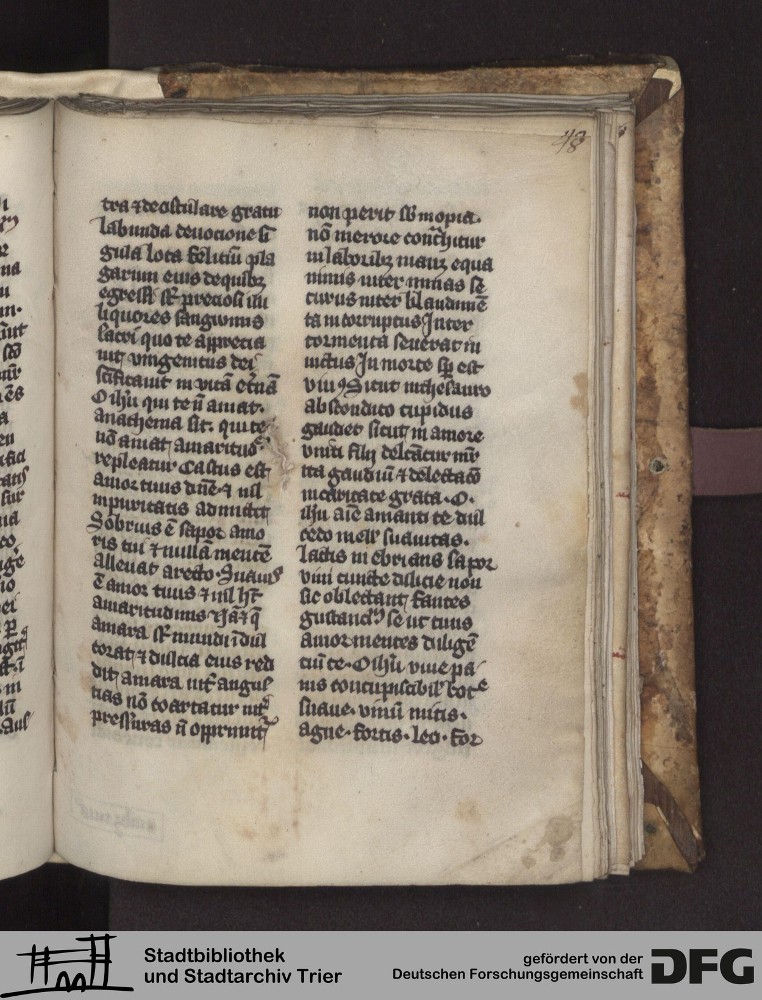 48
tra ⁊ deosculare gratu
labunda deuocione si
gula loca feliciū pla
garum eius de quibꝫ
egressi sūt preciosi illi
liquores sanguinis
sacri quo te apprecia
uit vnigenitus dei
scīficauit in vitā et̄nā
O ihū qui te nō amat·
anathema sit· qui te
nō amat amaritudīe
repleatur Castus est
amor tuus dn̄e ⁊ nil
inpuritatis admittit
Sobrius ē sapor amo
ris tui ⁊ nullā mentē
alienat a recto· Suauis
ē amor tuus ⁊ nil hꝫ
amaritudinis
amara sūt mundi ī dul
corat ⁊ dulcia eius red
dit amara int̄ angus
tias nō coartatur int̄
pressuras nō opprimit᷑
non perit sb̄ inopia·
nō merore contrahitur
in laboribꝫ manꝫ equa
nimis inter minas se
curus inter blandimē
ta incorruptus Inter
tormenta seuerat in
uictus In morte sp̄ est
viuꝰ Sicut in thesauro
abscondito cupidus
gaudet sicut in amore
vnici filij delcātur mr̄
ita gaudiū ⁊ delectacō
in caritate grata· O·
ihū aīe amanti te dul
cedo mell' suauitas·
lactis inebrians sapor
vini cuncte delicie non
sic oblectant fauces
gustanciū se ut tuus
amor mentes diligē
ciū te· O ihū viue pa
nis concupiscibil' bot͛
suaue· vinū mitis·
agne· fortis· leo· for
Stadtbibliothek
und Stadtarchiv Trier
gefördert von der
Deutschen Forschungsgemeinschaft
DFG